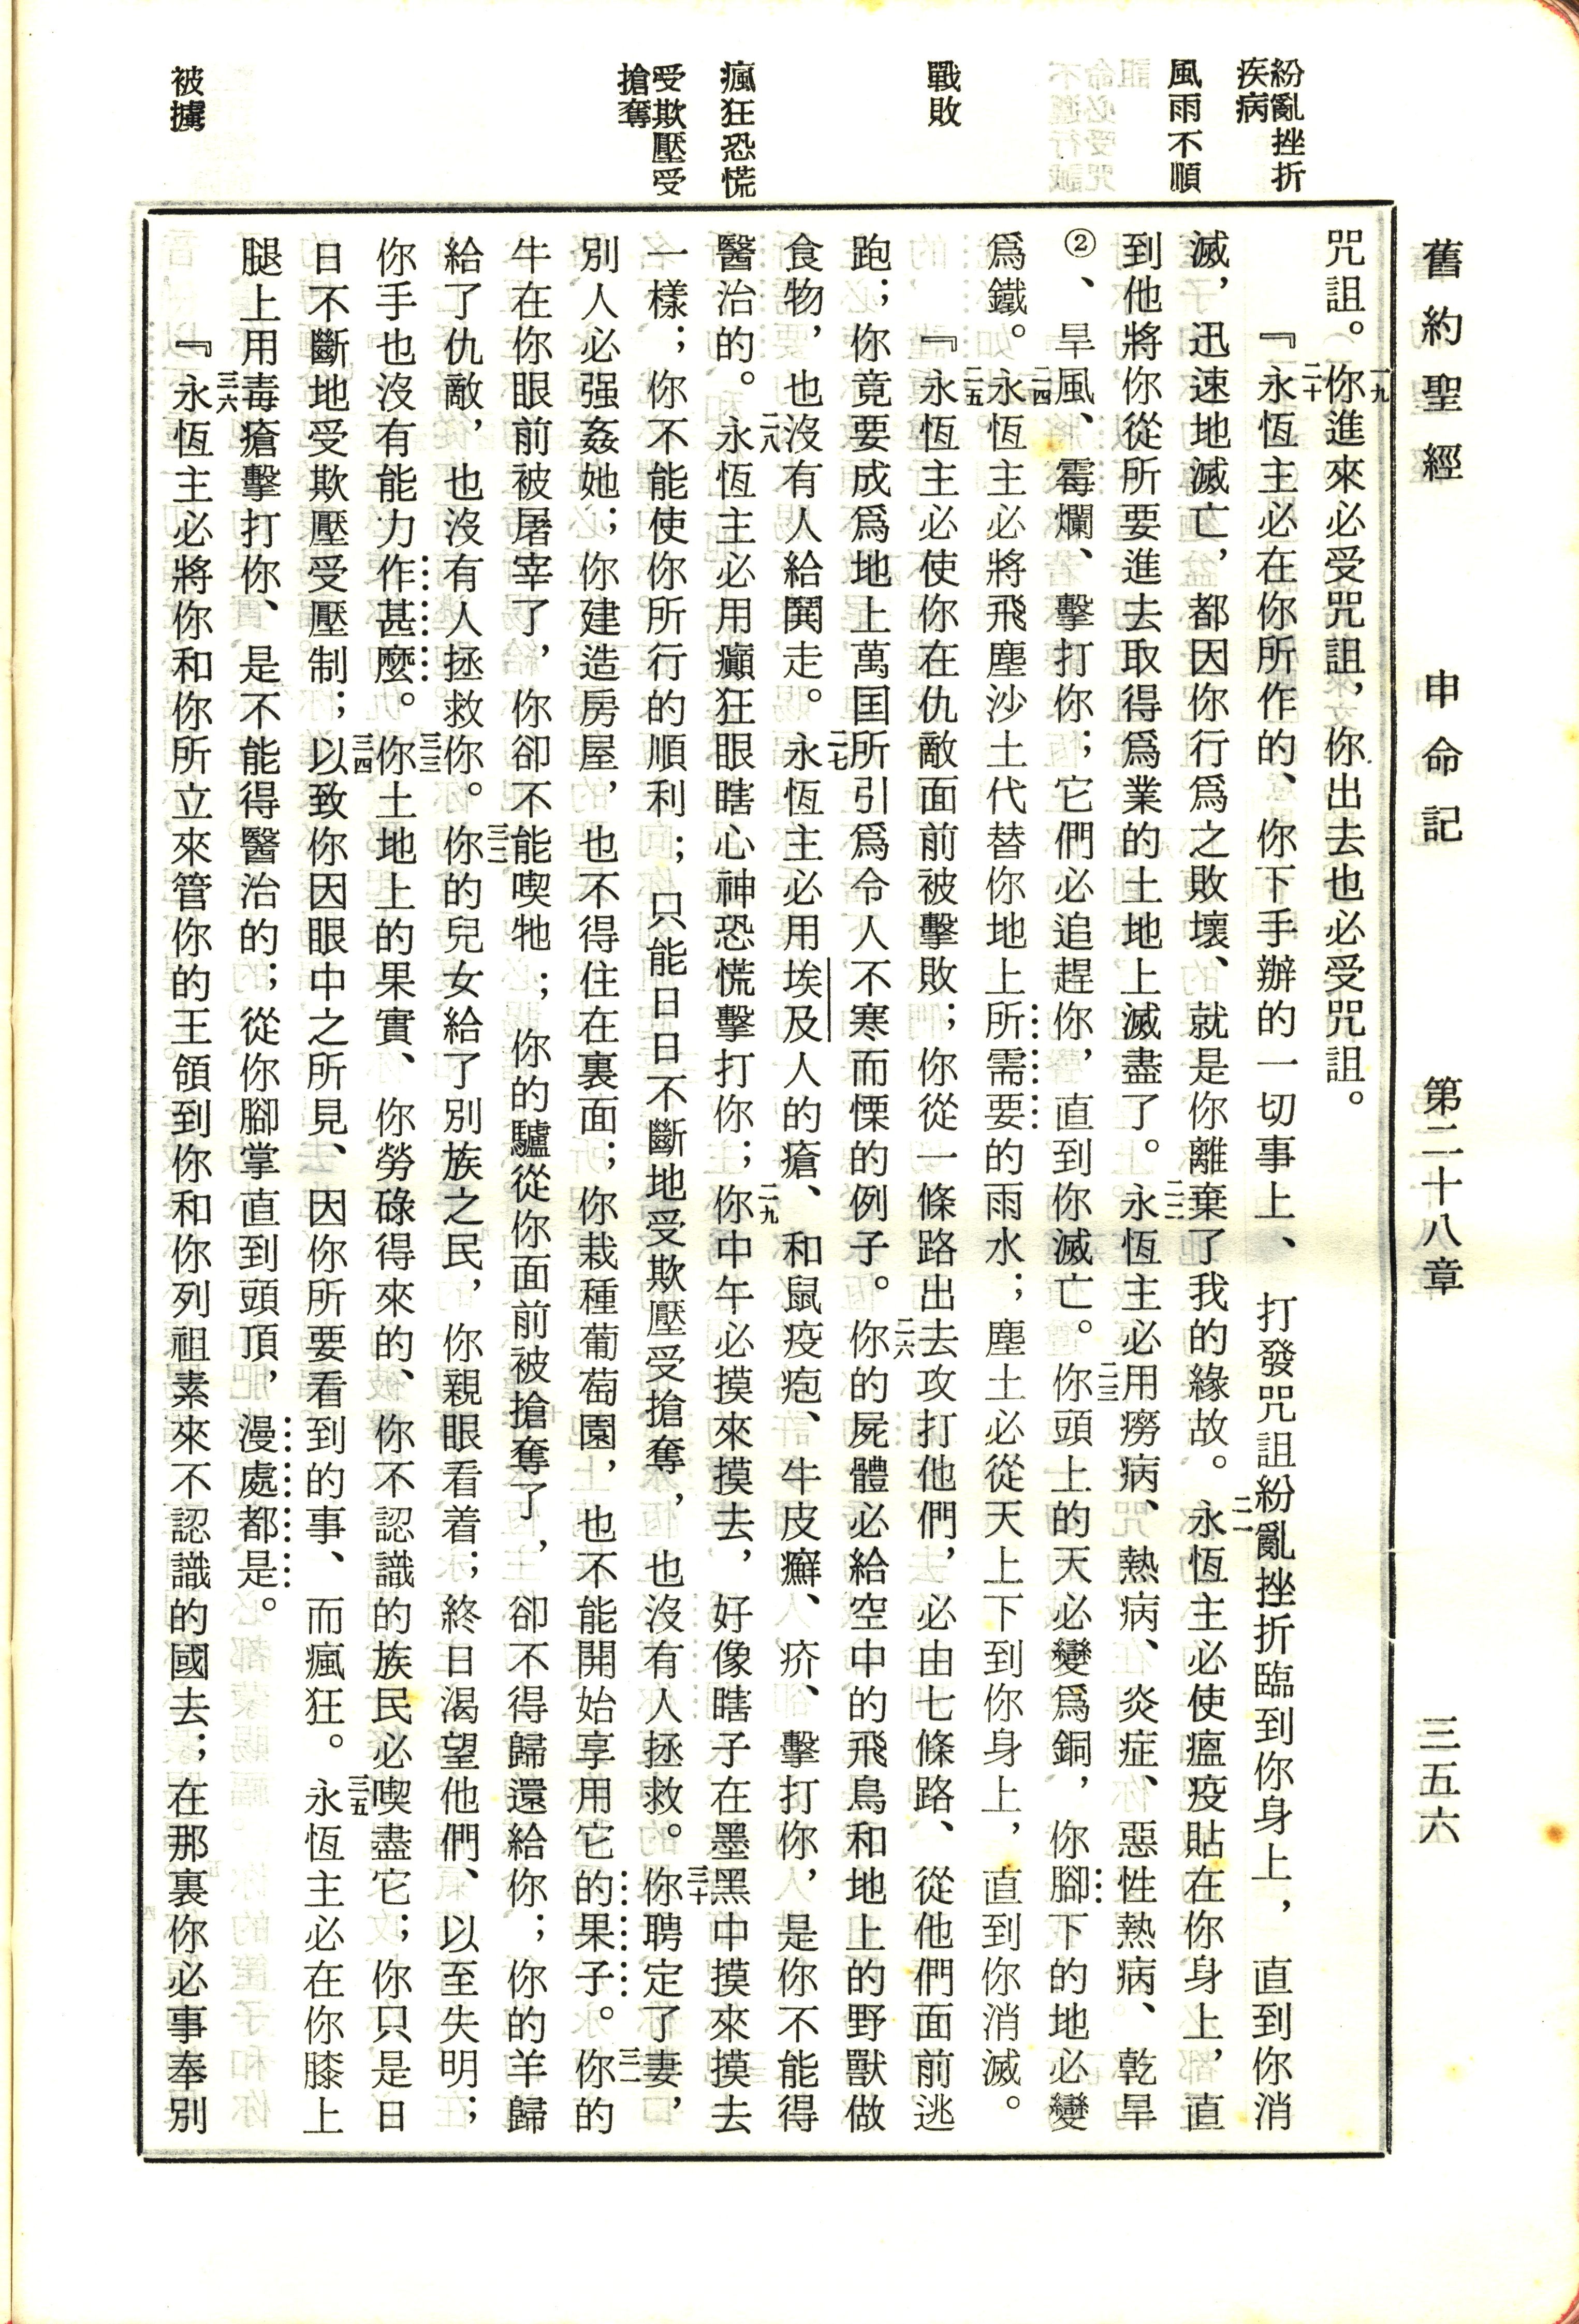 舊約聖經　申命記　第二十八章　三五六
紛亂挫折
疾病
風雨不順
戰敗
瘋狂恐慌
受欺壓受
搶奪
被擄
咒詛。一九你進來必受咒詛，你出去也必受咒詛。
『二十永恆主必在你所作的、你下手辦的一切事上、打發咒詛紛亂挫折臨到你身上，直到你消
滅，迅速地滅亡，都因你行爲之敗壞、就是你離棄了我的緣故。二一永恆主必使瘟疫貼在你身上，直
到他將你從所要進去取得爲業的土地上滅盡了。二二永恆主必用癆病、熱病、炎症、惡性熱病、乾旱
②、旱風、霉爛、擊打你；它們必追趕你，直到你滅亡。二三你頭上的天必變爲銅，你腳下的地必變
爲鐵。二四永恆主必將飛塵沙土代替你地上所需要的雨水；塵土必從天上下到你身上，直到你消滅。
『二五永恆主必使你在仇敵面前被擊敗；你從一條路出去攻打他們，必由七條路、從他們面前逃
跑；你竟要成爲地上萬国所引爲令人不寒而慄的例子。二六你的屍體必給空中的飛鳥和地上的野獸做
食物，也沒有人給鬨走。二七永恆主必用埃及人的瘡、和鼠疫疱、牛皮癬、疥、擊打你，是你不能得
醫治的。二八永恆主必用癲狂眼瞎心神恐慌擊打你；二九你中午必摸來摸去，好像瞎子在墨黑中摸來摸去
一樣；你不能使你所行的順利；只能日日不斷地受欺壓受搶奪，也沒有人拯救。三十你聘定了妻，
別人必强姦她；你建造房屋，也不得住在裏面；你栽種葡萄園，也不能開始享用它的果子。三一你的
牛在你眼前被屠宰了，你卻不能喫牠；你的驢從你面前被搶奪了，卻不得歸還給你；你的羊歸
給了仇敵，也沒有人拯救你。三二你的兒女給了別族之民，你親眼看着；終日渴望他們、以至失明；
你手也沒有能力作甚麼。三三你土地上的果實、你勞碌得來的、你不認識的族民必喫盡它；你只是日
日不斷地受欺壓受壓制；三四以致你因眼中之所見、因你所要看到的事、而瘋狂。三五永恆主必在你膝上
腿上用毒瘡擊打你、是不能得醫治的；從你腳掌直到頭頂，漫處都是。
『三六永恆主必將你和你所立來管你的王領到你和你列祖素來不認識的國去；在那裏你必事奉別